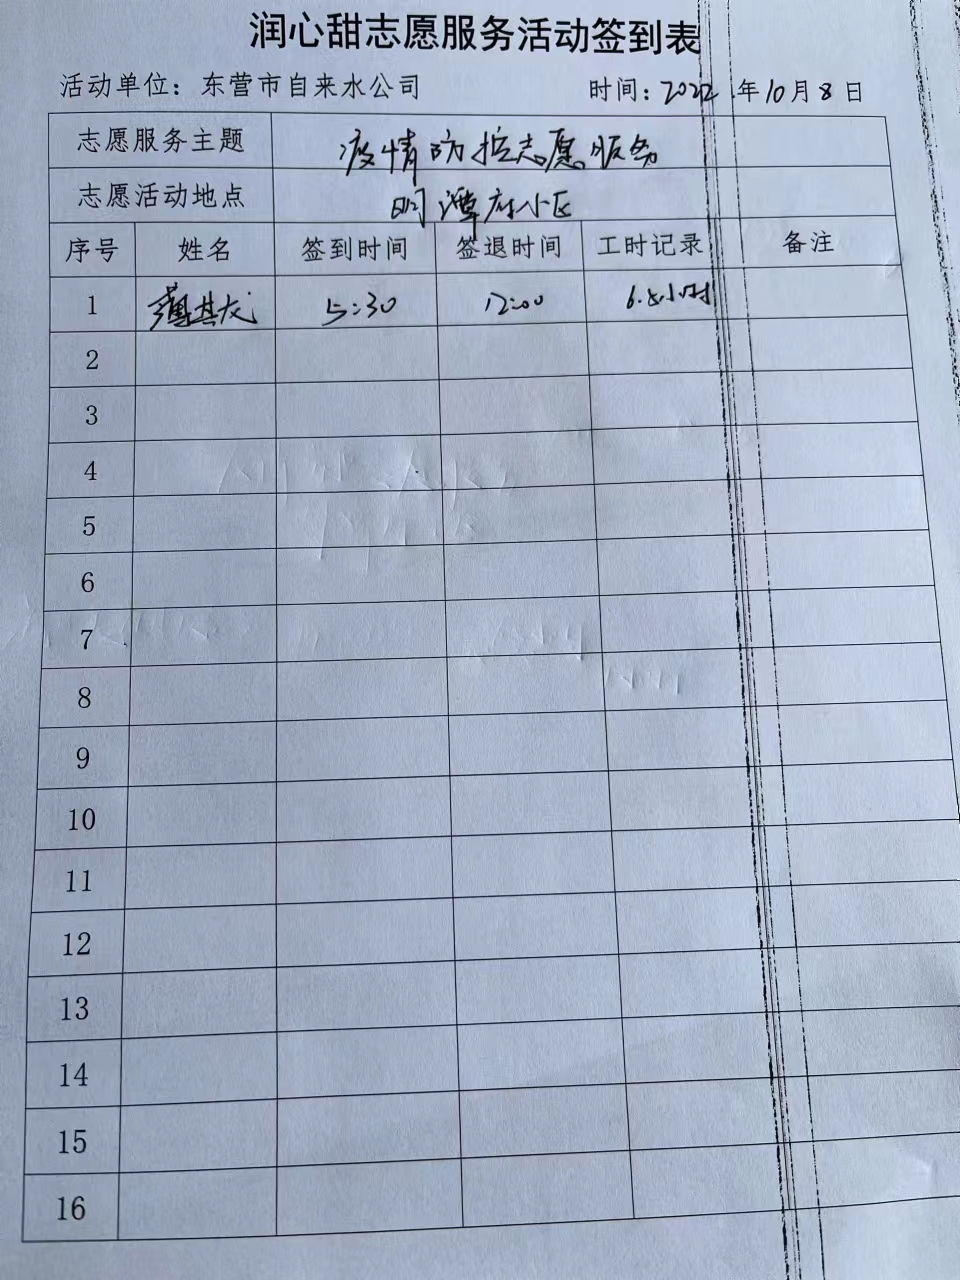 润心甜志愿服务活动签到表
活动单位：东营市自来水公司 时间：2022年10月8日
志愿服务主题 疫情防控志愿服务
志愿活动地点 明潭府小区
序号 姓名 签到时间 签退时间 工时记录 备注
1 5:30 12:00 小时
2
3
4
5
6
7
8
9
10
11
12
13
14
15
16